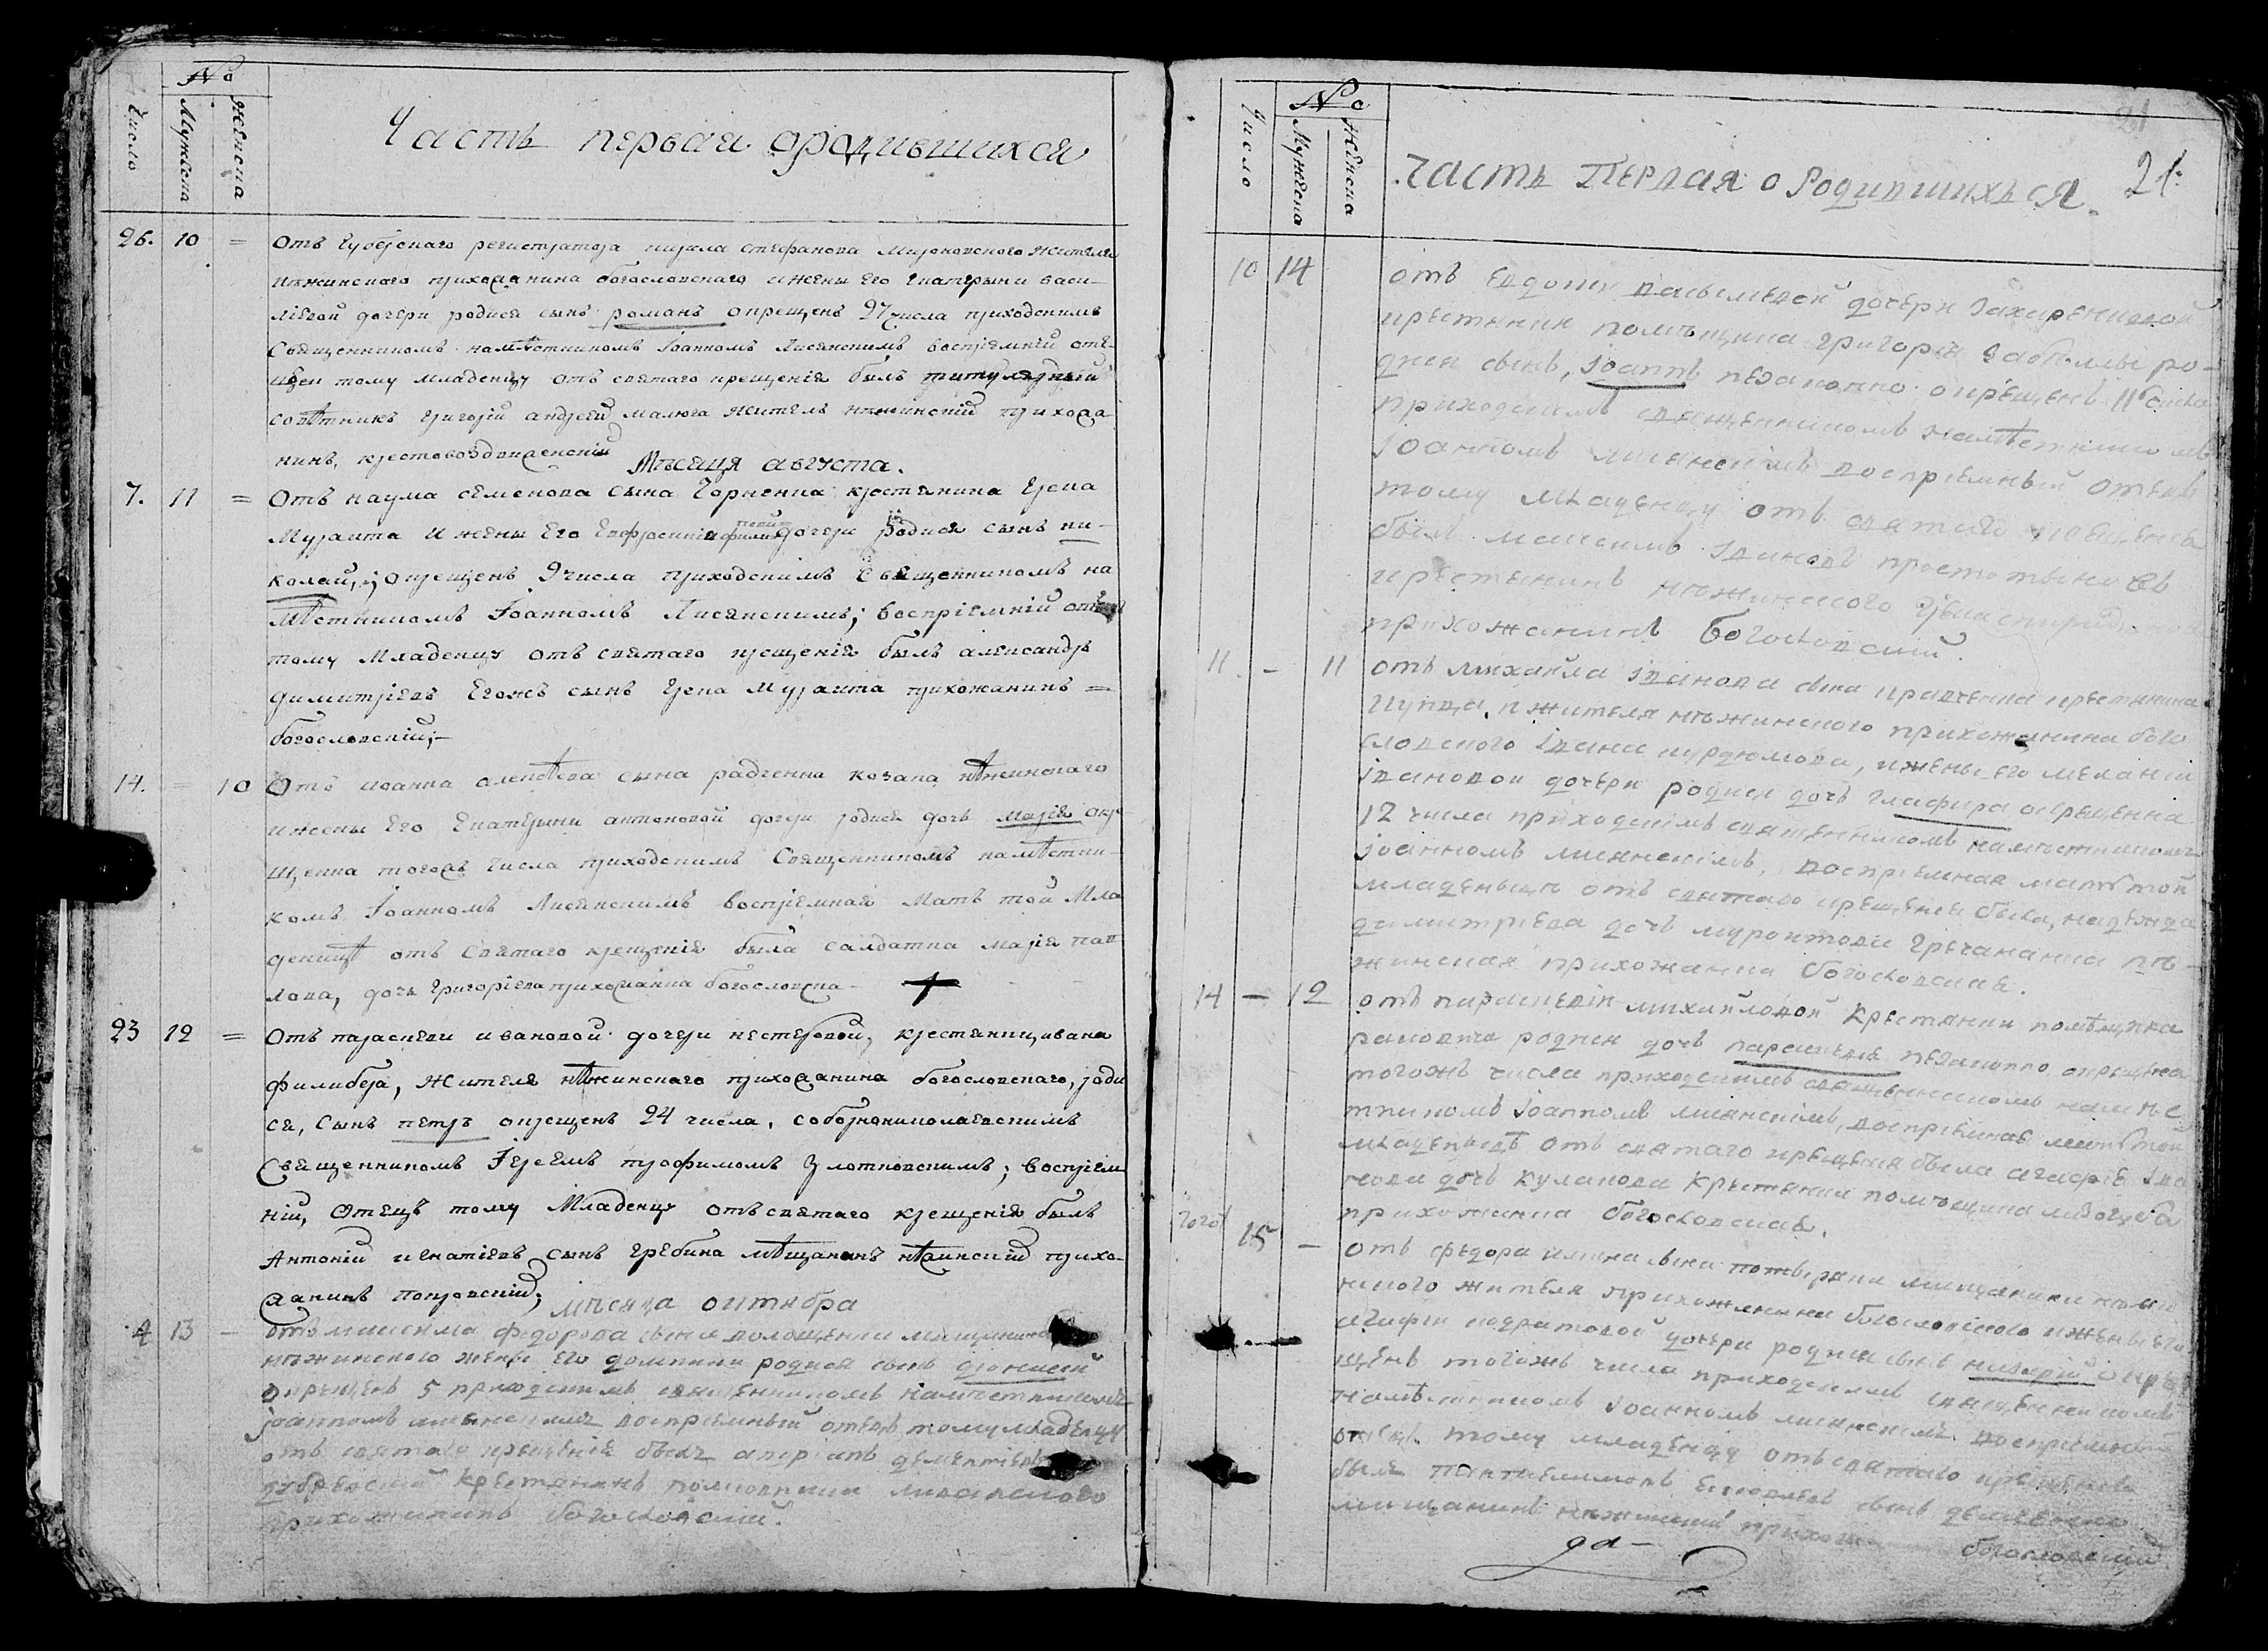 №
Число
Мужеска
Женска
Часть первая ородившихся
26. 10 = Отъ Губерскаго регистратора кирила стефанова Мироновского жителя
нѣжинскаго прихожанина богословскаго ижены Его Екатерыни васи-
лiевой дочери родися сынъ романъ окрещенъ 27 числа приходскимъ
Священникомъ намѣстникомъ Iоанномъ Лисянскимъ воспрiемнiй оте-
тому младенцу отъ святаго крещенiя былъ титулярный
совѣтникъ григорiй андреевъ малюга житель нѣжинскiй прихожа
нинъ, крестовоздвиженскiй
Мѣсяця августа.
7. 11 = Отъ наума семенова сына Горкенка крестянина Грека
Мураита и жены Его Евфросинiи дочери родися сынъ ни-
колай, окрещенъ 9 числа приходскимъ Священникомъ на
мѣстникомъ Iоанномъ Лисянскимъ; воспрiемнiй отецъ
тому Младенцу отъ святаго крещенiя былъ александръ
димитрiевъ Егожъ сынъ Грека Мураита прихожанинъ =
богословскiй;-
14. = 10 Отъ иоанна алексѣева сына радченка козака нѣжинскаго
ижены Его Екатерини антоновой дочери родися дочь марiя окре
щенна тогожъ числа приходскимъ Священникомъ намѣстни-
комъ Iоанномъ Лисянскимъ воспрiемная Мать той Мла
деницѣ отъ Святаго крещенiя была салдатка марiя пав
лова, дочь григорiева прихожанка богословска -
23 12 = Отъ параскеви ивановой дочери нестеровой, крестянки, ивана
филибера, жителя нѣжинскаго прихожанина богословскаго, роди
ся, Сынъ петръ окрещенъ 24 числа, соборнониколаевскимъ
Священникомъ Iереемъ трофимомъ Злотковскимъ; воспрiем
нiй, Отецъ тому Младенцу отъ святаго крещенiя былъ
Антонiй игнатiевъ сынъ гребина мѣщанинъ нѣжинскiй прихо-
жанинъ покровскiй;
мѣсяца октября
4 13 - отъ максима федорова сына волощенка мищанина
нѣжинского жены Его домники родися сынъ дионисей
окрещенъ 5 приходскимъ священникомъ намѣстникомъ
iоанномъ лисянскимъ воспрiемный отецъ тому младенцу
отъ святаго крещенiя былъ дементiевъ
крестянинъ
прихожанинъ богословскiй.
№
Число
Мужеска
Женска
21
часть Первая о Родившихъся. 21.
10 14 отъ Евдокiи васильевой дочери Захаренковой
крестянки помѣщика григорiя забѣлы ро-
дися сынъ, Iоаннъ незаконно окрещенъ 11 числа
приходскимъ священникомъ намѣстникомъ
Iоанномъ лисянскимъ воспрiемный отецъ
тому младенцу отъ святаго крещенiя
былъ максимъ Ивановъ
крестянинъ нѣжинского
прихожанинъ Богословскiй.
11. - 11 отъ михаила iванова сына кравченка крестянина
купца, и жителя нѣжинского прихожанина бого
словского iвана курдюмова, ижены его меланiи
iвановой дочери родися дочь глафира окрещенна
12 числа приходскимъ священникомъ намѣстникомъ
iоанномъ лисянскимъ, воспрiемная мать той
младеницѣ отъ святаго крещенiя была, надежда
димитрiева дочъ муронтова гречанка нѣ-
жинская прихожанка богословская.
14 - 12 отъ параскевiи михайловой крестянки помѣщика
родися дочъ параскевiя незаконно окрещена
тогожъ числа приходскимъ священникомъ намѣс
тникомъ iоанномъ лисянскимъ, воспрiемная мать той
младеницѣ отъ святаго крещенiя была агафiя iва
нова дочъ кулакова крестянка помѣщика
прихожанка богословская.
тогож 15 - отъ федора сына мищанина
жителя прихожанина богословского ижены его
агафiи кодратовой дочери родися сынъ окре
щенъ тогожъ числа приходскимъ священникомъ
намѣстникомъ iоанномъ лисянскимъ воспрiемный
отецъ тому младенцу отъ святаго крещенiя
былъ пантелимонъ сынъ
мищанинъ нѣжинскiй богословскiй